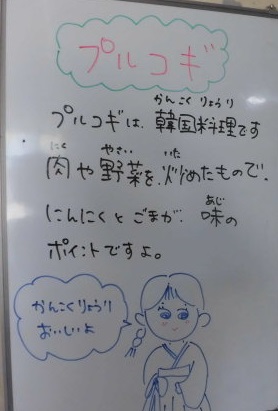 プルコギ
かんこくりょうり
プルコギは、韓国料理です
にく やさい いた
肉や野菜を、炒めたもので、
あじ
にんにくとごまが、味の
ポイントですよ。
かんこくりょうり
おいしいよ